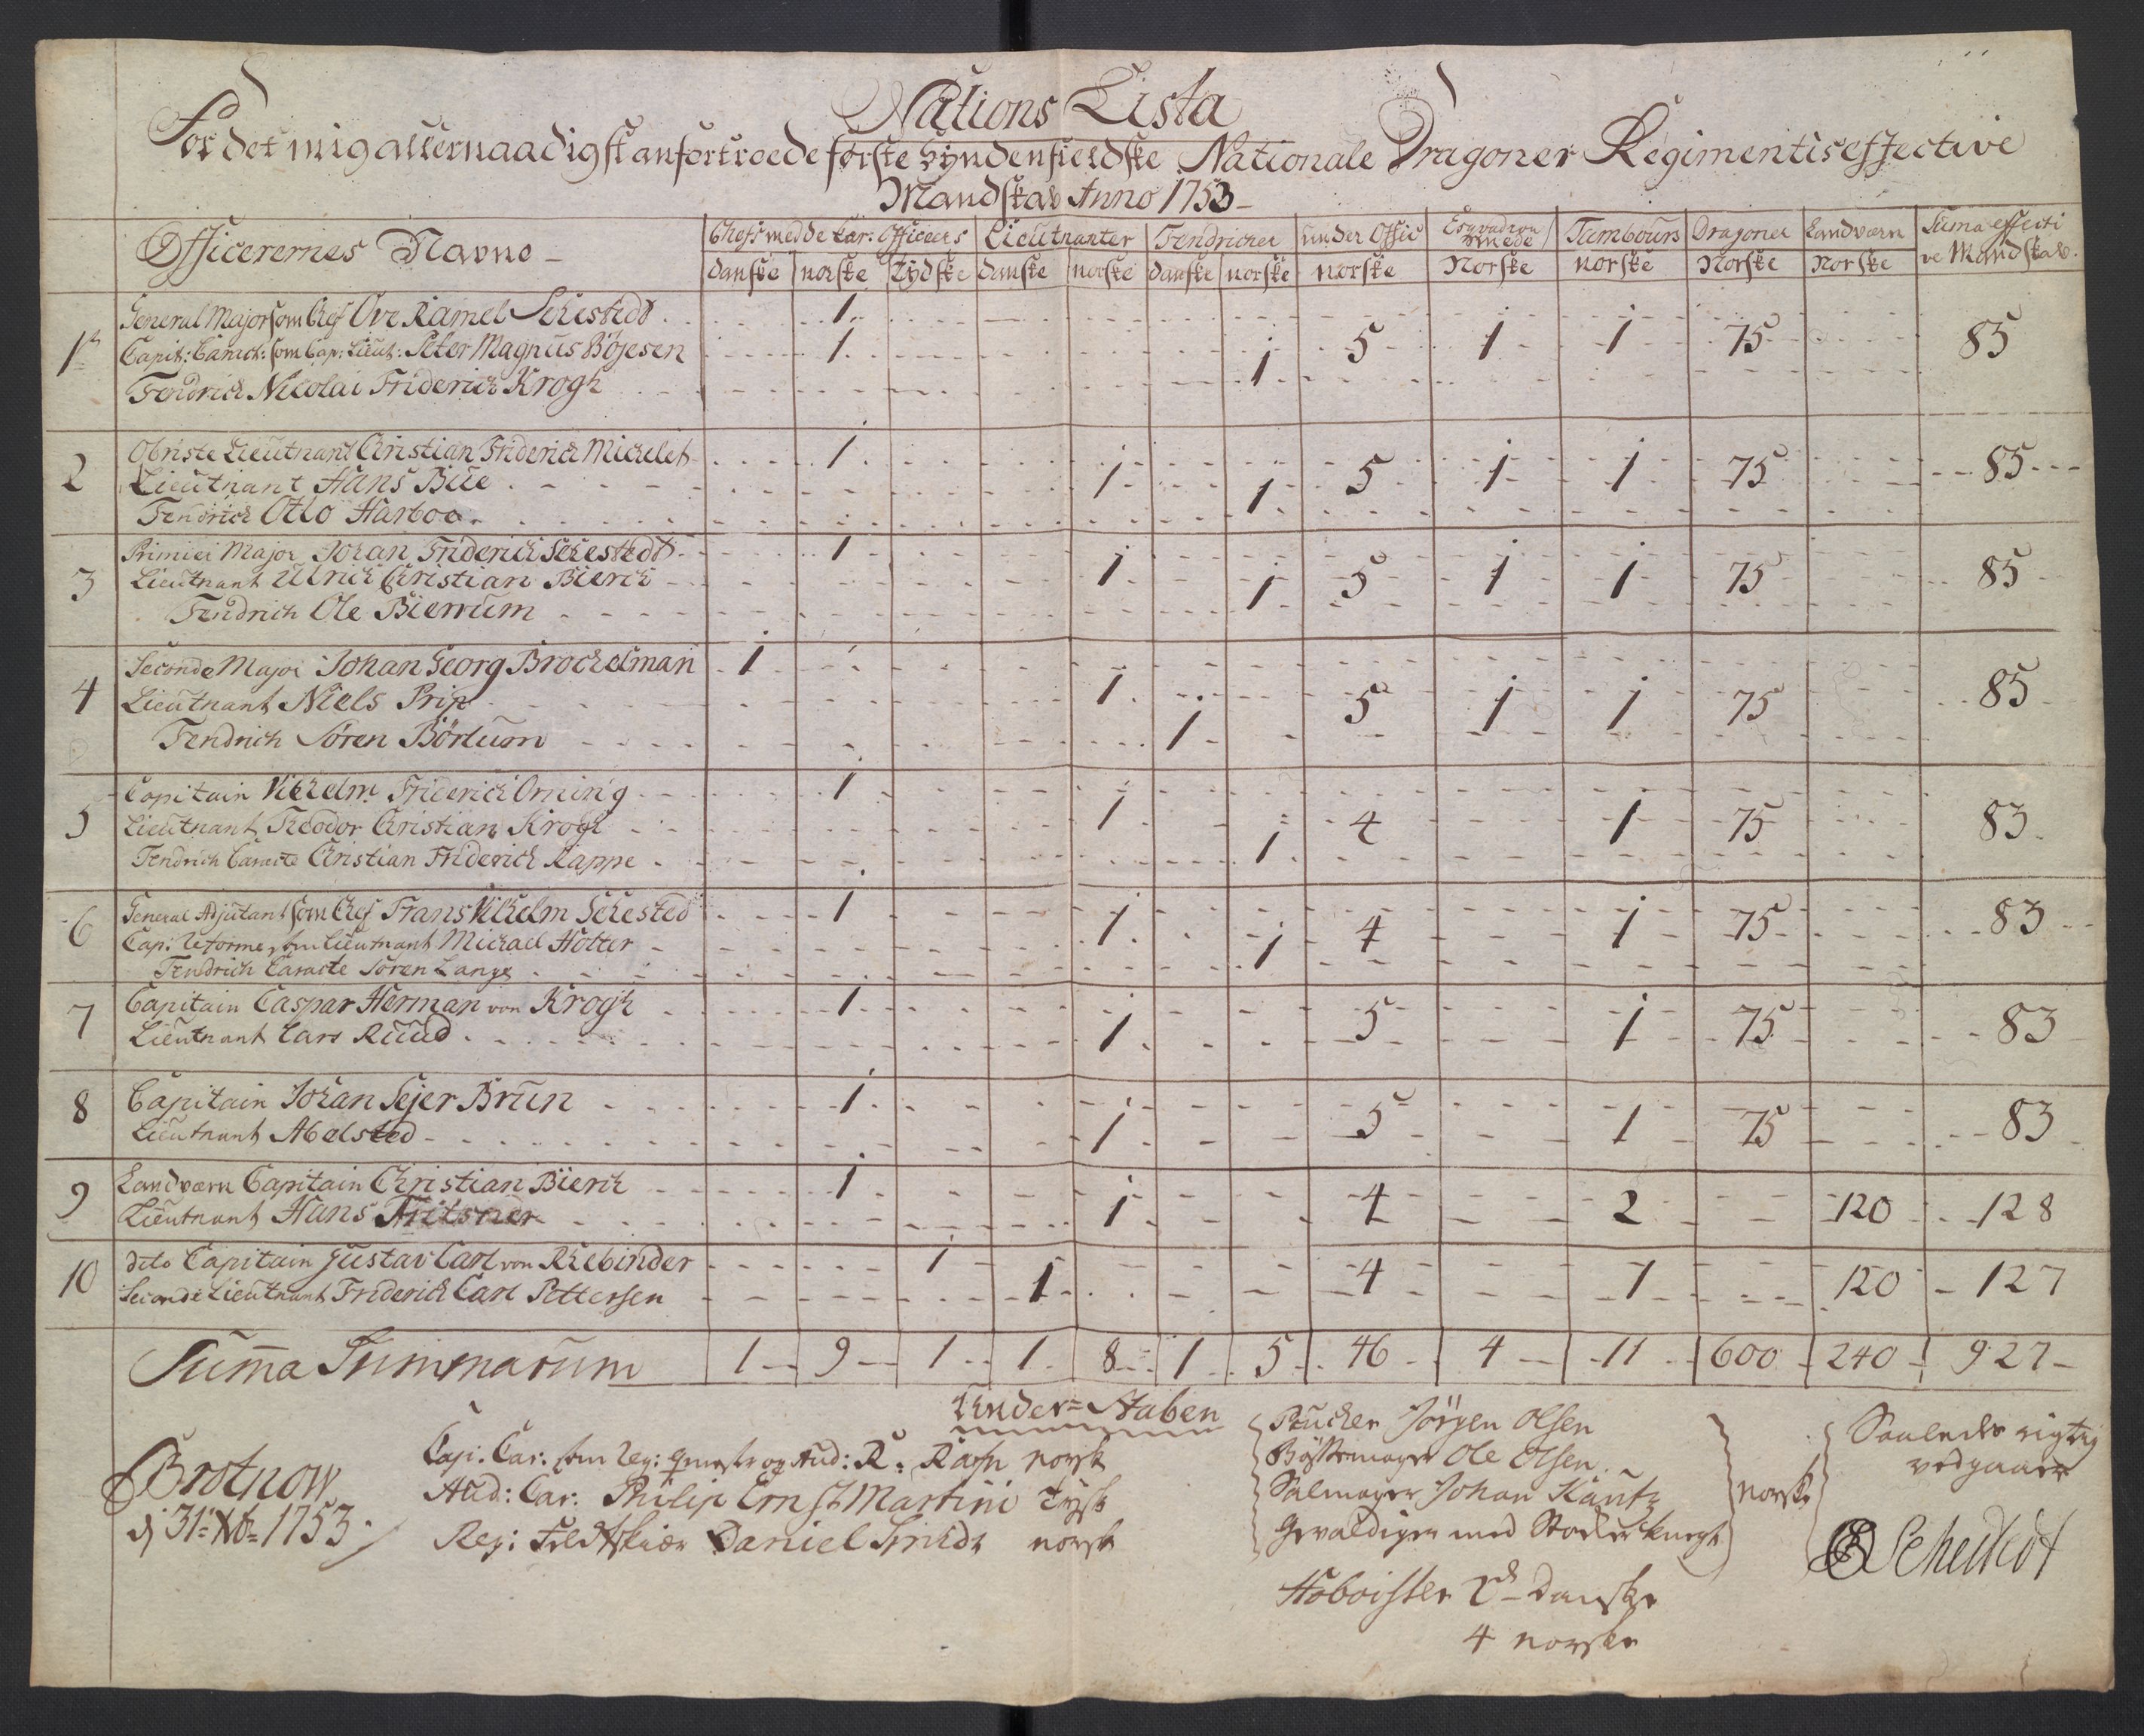 Nations Lista
For det mig allernaadigst anfortroede første Syndenfieldske Nationale Dragoner Regimentis effective
Mandskab Anno 1753
Officerernes Navne | Chefs med de Car: Officers | Lieutnanter | Fendricher | Under Offic | Esqvadron Smede | Tambours | Dragoner | Landværn | Suma effecti
danske | norske | tydske | danske | norske | danske | norske | norske | Norske | norske | Norske | Norske | ve Mandskab.
1 General Major som Chef Ove Ramel Sehestedt 1
Capit: Caract: som Cap: Lieut: Peter Magnus Böjesen 1 5 1 1 75 85
Fendrich Nicolai Friderich Krogh 1
2 Obriste Lieutnant Christian Friderich Michelet 1
Lieutnant Hans Bue 1 5 1 1 75 85
Fendrich Otto Harboe 1
3 Primier Major Johan Friderich Sehestedt 1
Lieutnant Ulrich Christian Bierch 1 5 1 1 75 85
Fendrich Ole Bierrum 1
4 Seconde Major Johan Georg Brochelman 1
Lieutnant Niels Prip 1 5 1 1 75 85
Fendrich Søren Börlum 1
5 Capitain Vilhelm Friderich Orning 1
Lieutnant Theodor Christian Krogh 1 4 1 75 83
Fendrich Caracte Christian Friderich Rappe 1
6 General Adjutant som Chef Frans Vilhelm Sehested 1
Cap: Reforme som Lieutnant Michael Holter 1 4 1 75 83
Fendrich Caracte Soren Lange 1
7 Capitain Caspar Herman von Krogh 1 5 1 75 83
Lieutnant Lars Ruud 1
8 Capitain Johan Sejer Brun 1 5 1 75 83
Lieutnant Abelsted 1
9 Landværn Capitain Christian Bierch 1 4 2 120 128
Lieutnant Hans 1
10 dito Capitain Gustav Carl von Rhebinder 1 4 1 120 127
Seconde Lieutnant Friderich Carl Pettersen 1
Summa Summarum 1 9 1 1 8 1 5 46 4 11 600 240 927
Under=Staben
Cap: Car: som Reg: qvmestr og Aud: R: norsk
Aud: Car: Philip Ernst Martini tysk
Reg: Feldtskiær Daniel Smidt norsk
Paucher Jörgen Olsen
Bøssemager Ole Olsen
Salmager Johan Kautz
Gevaldiger med Stocker knegt
norske
Hoboister 2 Danske
4 norske
Saaledes rigtig
vedgaaer
Brotnow
d 31 Xb= 1753
Sehestedt